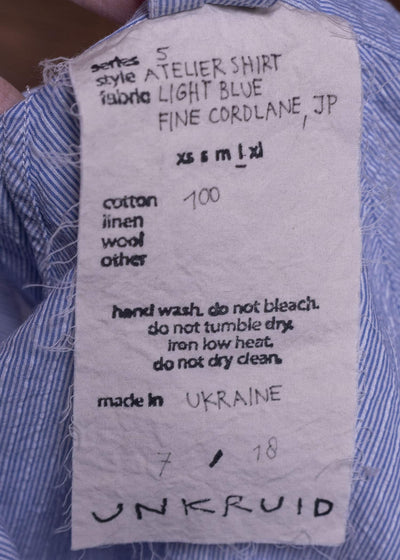 series 5
style ATELIER SHIRT
fabric LIGHT BLUE
FINE CORDLANE, JP
xs s m l xl
cotton 100
linen
wool
other
hand wash. do not bleach.
do not tumble dry.
iron low heat.
do not dry clean.
made in UKRAINE
7 / 18
UNKRUID